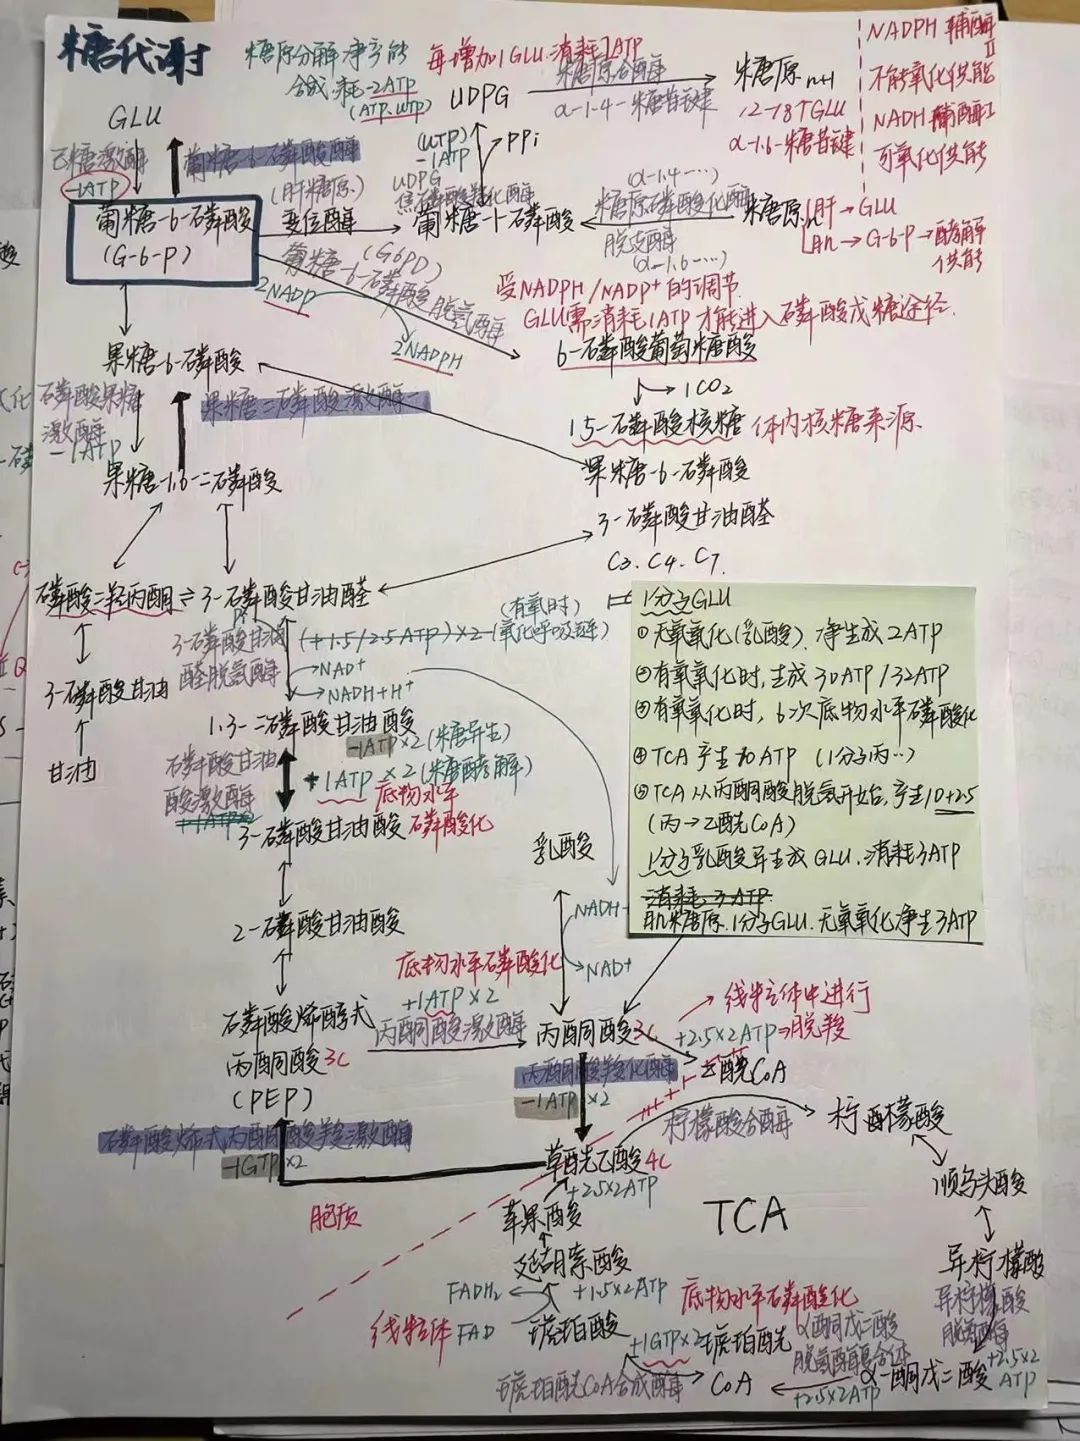 糖代谢
糖原分解净产能
合成:耗-2ATP
(ATP.UTP)
每增加1GLU.消耗2ATP
UDPG
糖原合酶
α-1.4-糖苷键
糖原n+1
12-18个GLU
α-1.6-糖苷键
NADPH 辅酶II
不能氧化供能
NADH 辅酶I
可氧化供能
GLU
己糖激酶
-1ATP
葡糖-6-磷酸酶
(肝糖原)
(UTP)
-1ATP
PPi
UDPG
焦磷酸化酶
葡糖-6-磷酸
(G-6-P)
变位酶
葡糖-1-磷酸
(α-1.4-…)
糖原磷酸化酶
脱支酶
(α-1.6-…)
糖原n
肝→GLU
肌→G-6-P→酵解
供能
(G6PD)
葡糖-6-磷酸脱氢酶
2NADP
2NADPH
受NADPH/NADP+的调节
GLU需消耗1ATP才能进入磷酸戊糖途径.
6-磷酸葡萄糖酸
1CO2
果糖-6-磷酸
磷酸果糖
激酶
-1ATP
果糖二磷酸激酶-1
15-磷酸核糖
体内核糖来源
果糖-6-磷酸
3-磷酸甘油醛
C3.C4.C7.
果糖-1.6-二磷酸
磷酸二羟丙酮⇌3-磷酸甘油醛
3-磷酸甘油
醛脱氢酶
(+1.5/2.5ATP)×2-(有氧时)
(氧化呼吸链)
NAD+
NADH+H+
3-磷酸甘油
甘油
1.3-二磷酸甘油酸
-1ATP×2(糖异生)
磷酸甘油
酸激酶
+1ATP×2
+1ATP×2(糖酵解)
底物水平
磷酸化
3-磷酸甘油酸
1分子GLU
①无氧氧化(乳酸).净生成2ATP
②有氧氧化时,生成30ATP/32ATP
③有氧氧化时,6次底物水平磷酸化
④TCA产生10ATP(1分子丙…)
⑤TCA从丙酮酸脱氢开始,产生10+2.5
(丙→乙酰CoA)
1分子乳酸异生成GLU.消耗3ATP
消耗3ATP
肌糖原.1分子GLU.无氧氧化净生3ATP
乳酸
NADH
NAD+
2-磷酸甘油酸
底物水平磷酸化
+1ATP×2
丙酮酸激酶
磷酸烯醇式
丙酮酸3C
(PEP)
丙酮酸3C
线粒体中进行
+2.5×2ATP→脱羧
乙酰CoA
丙酮酸羧化酶
-1ATP×2
柠檬酸合酶
柠檬酸
磷酸烯醇式丙酮酸羧激酶
-1GTP×2
草酰乙酸4C
+2.5×2ATP
胞质
苹果酸
TCA
顺乌头酸
延胡索酸
FADH2
+1.5×2ATP
异柠檬酸
异柠檬酸
脱氢酶
+2.5×2
ATP
线粒体
FAD
琥珀酸
底物水平磷酸化
+1GTP×2
琥珀酰
CoA
琥珀酰CoA合成酶
α酮戊二酸
脱氢酶复合体
+2.5×2ATP
α-酮戊二酸